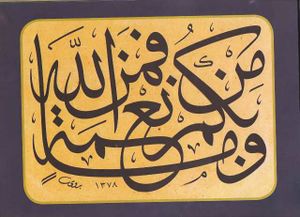 وما بكم من نعمة فمن الله
١٣٧٨